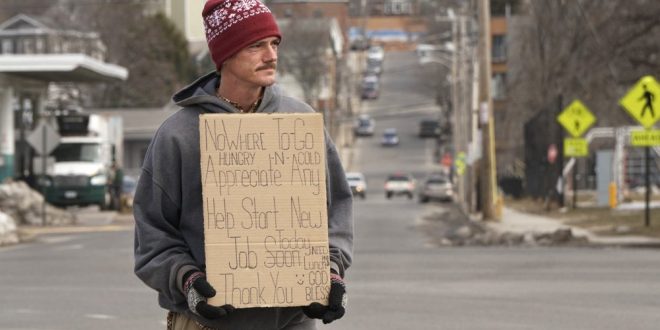 NoWhere To Go
HUNGRY -N- COLD
Appreciate Any
Help Start New
Job Soon Today
Thank You
NEED
LUNCH
GOD
BLESS
AHEAD